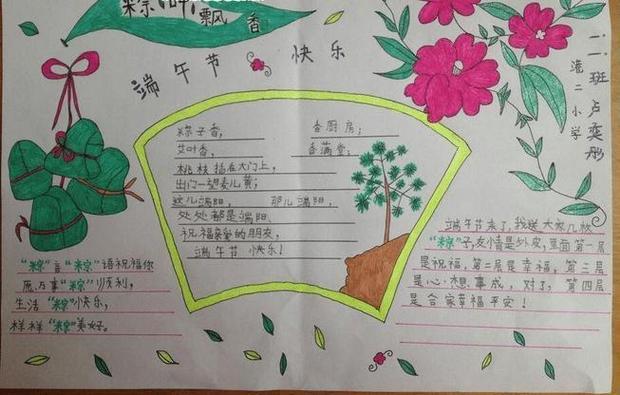 粽叶飘香
端午节快乐
二.二班占奕彤
港二小学
粽子香,香厨房;
艾叶香,香满堂;
桃枝插在大门上,
出门一望麦儿黄;
这儿端阳,那儿端阳,
处处都是端阳.
祝福亲爱的朋友,
端午节快乐!
"粽"言"粽"语祝福你
愿万事"粽"顺利,
生活"粽"快乐,
样样"粽"美好。
端午节来了,我送大家几枚
"粽"子友情是外皮,里面第一层
是祝福,第二层是幸福,第三层
是心·想·事成,对了,第四层
是合家幸福平安!